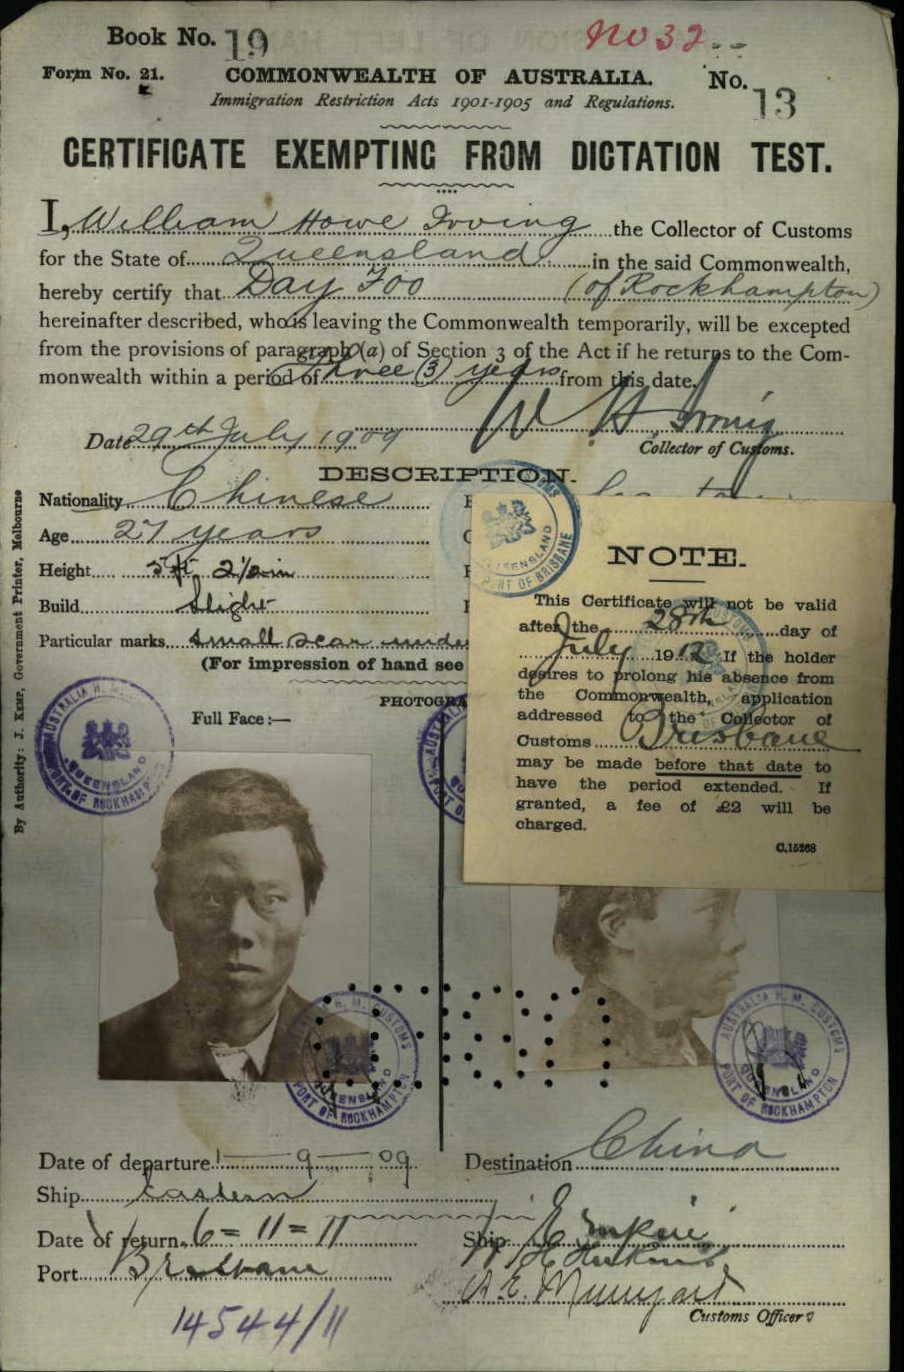 Book No. 19
No 32
Form No. 21.
COMMONWEALTH OF AUSTRALIA.
No. 13
Immigration Restriction Acts 1901-1905 and Regulations.
CERTIFICATE EXEMPTING FROM DICTATION TEST.
I, William Howe Irving the Collector of Customs
for the State of Queensland in the said Commonwealth,
hereby certify that Day Foo (of Rockhampton)
hereinafter described, who is leaving the Commonwealth temporarily, will be excepted
from the provisions of paragraph (a) of Section 3 of the Act if he returns to the Com-
monwealth within a period of Three (3) years from this date.
W. H. Irving
Date 29th July 1909
Collector of Customs.
DESCRIPTION.
Nationality Chinese
Age 27 years
Height 5 ft 2½ in
Build Slight
Particular marks small scar under
(For impression of hand see
PHOTOGRA
Full Face:—
NOTE.
This Certificate will not be valid
after the 28th day of
July 1912 If the holder
desires to prolong his absence from
the Commonwealth, application
addressed to the Collector of
Customs Brisbane
may be made before that date to
have the period extended. If
granted, a fee of £2 will be
charged.
C.15268
QUEENSLAND
PORT OF BRISBANE
AUSTRALIA H. M. CUSTOMS
QUEENSLAND
PORT OF ROCKHAMPTON
AUSTRALIA H. M. CUSTOMS
QUEENSLAND
PORT OF ROCKHAMPTON
AUSTRALIA H. M. CUSTOMS
QUEENSLAND
PORT OF ROCKHAMPTON
Date of departure 1—9—09
Destination China
Ship Eastern
Date of return 6=11=11
Ship Empire
Port Brisbane
Customs Officer
14544/11
By Authority: J. Kemp, Government Printer, Melbourne